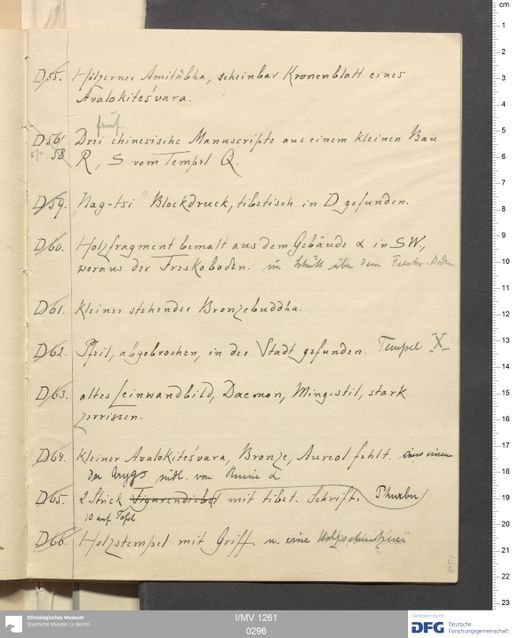 D 55. Hölzerner Amitâbha, scheinbar Kronenblatt eines
Avalokiteśvara.
fünf
D 56/ Drei chinesische Manuscripte aus einem kleinen Bau
57. 58. R, S vom Tempel Q
D 59. „Nag-tsi" Blockdruck, tibetisch in D gefunden.
D 60. Holzfragment bemalt aus dem Gebäude α in SW,
woraus der Freskoboden. im Schutt über dem Fresko-Boden
D 61. Kleiner stehender Bronzebuddha.
D 62. Pfeil, abgebrochen, in der Stadt gefunden. Tempel X
D 63. altes Leinwandbild, Daemon, Mingstil, stark
zerrissen.
D 64. Kleiner Avalokiteśvara, Bronze, Aureol fehlt. aus einem
der südl. von Ruine α
D 65. 2 Stück mit tibet. Schrift. Phurbu
10 auf Tafel
D 66. Holzstempel mit Griff u. eine Holzschnitzerei
Ethnologisches Museum
Staatliche Museen zu Berlin
I/MV 1261
0296
gefördert durch
DFG Deutsche
Forschungsgemeinschaft
cm
1
2
3
4
5
6
7
8
9
10
11
12
13
14
15
16
17
18
19
20
21
22
23